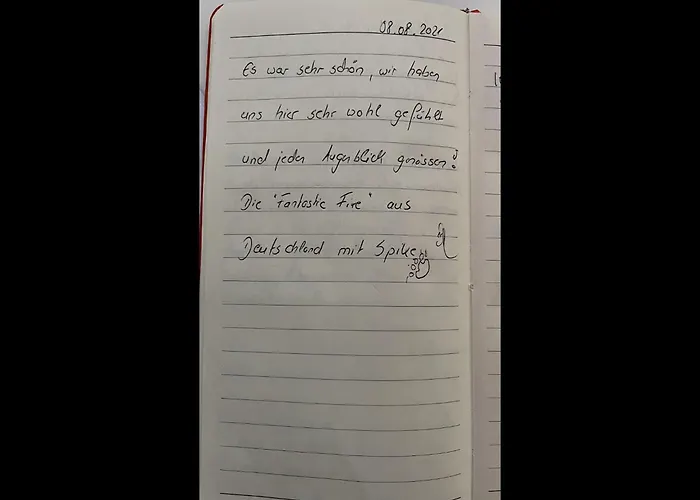 08.08.2021
Es war sehr schön, wir haben
uns hier sehr wohl gefühlt
und jeden Augenblick genossen!
Die "Fantastic Five" aus
Deutschland mit Spike